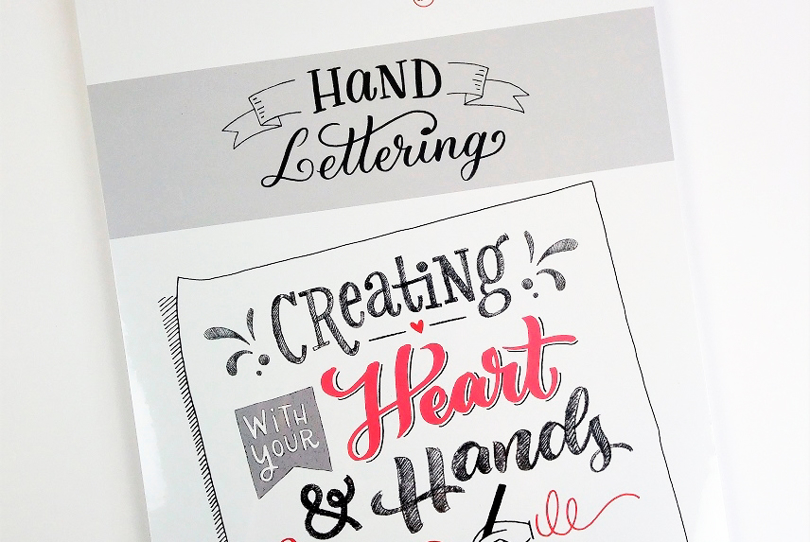 HaND
Lettering
CReatiNg
WiTH
YOUR
Heart
& Hands